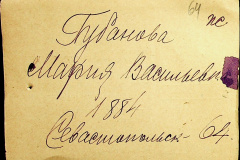 64 пс
Губанова
Мария Васильевн
1884
Севастопольск 64.